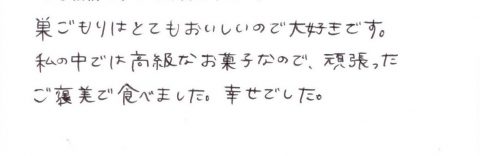 巣ごもりはとてもおいしいので大好きです。
私の中では高級なお菓子なので、頑張った
ご褒美で食べました。幸せでした。